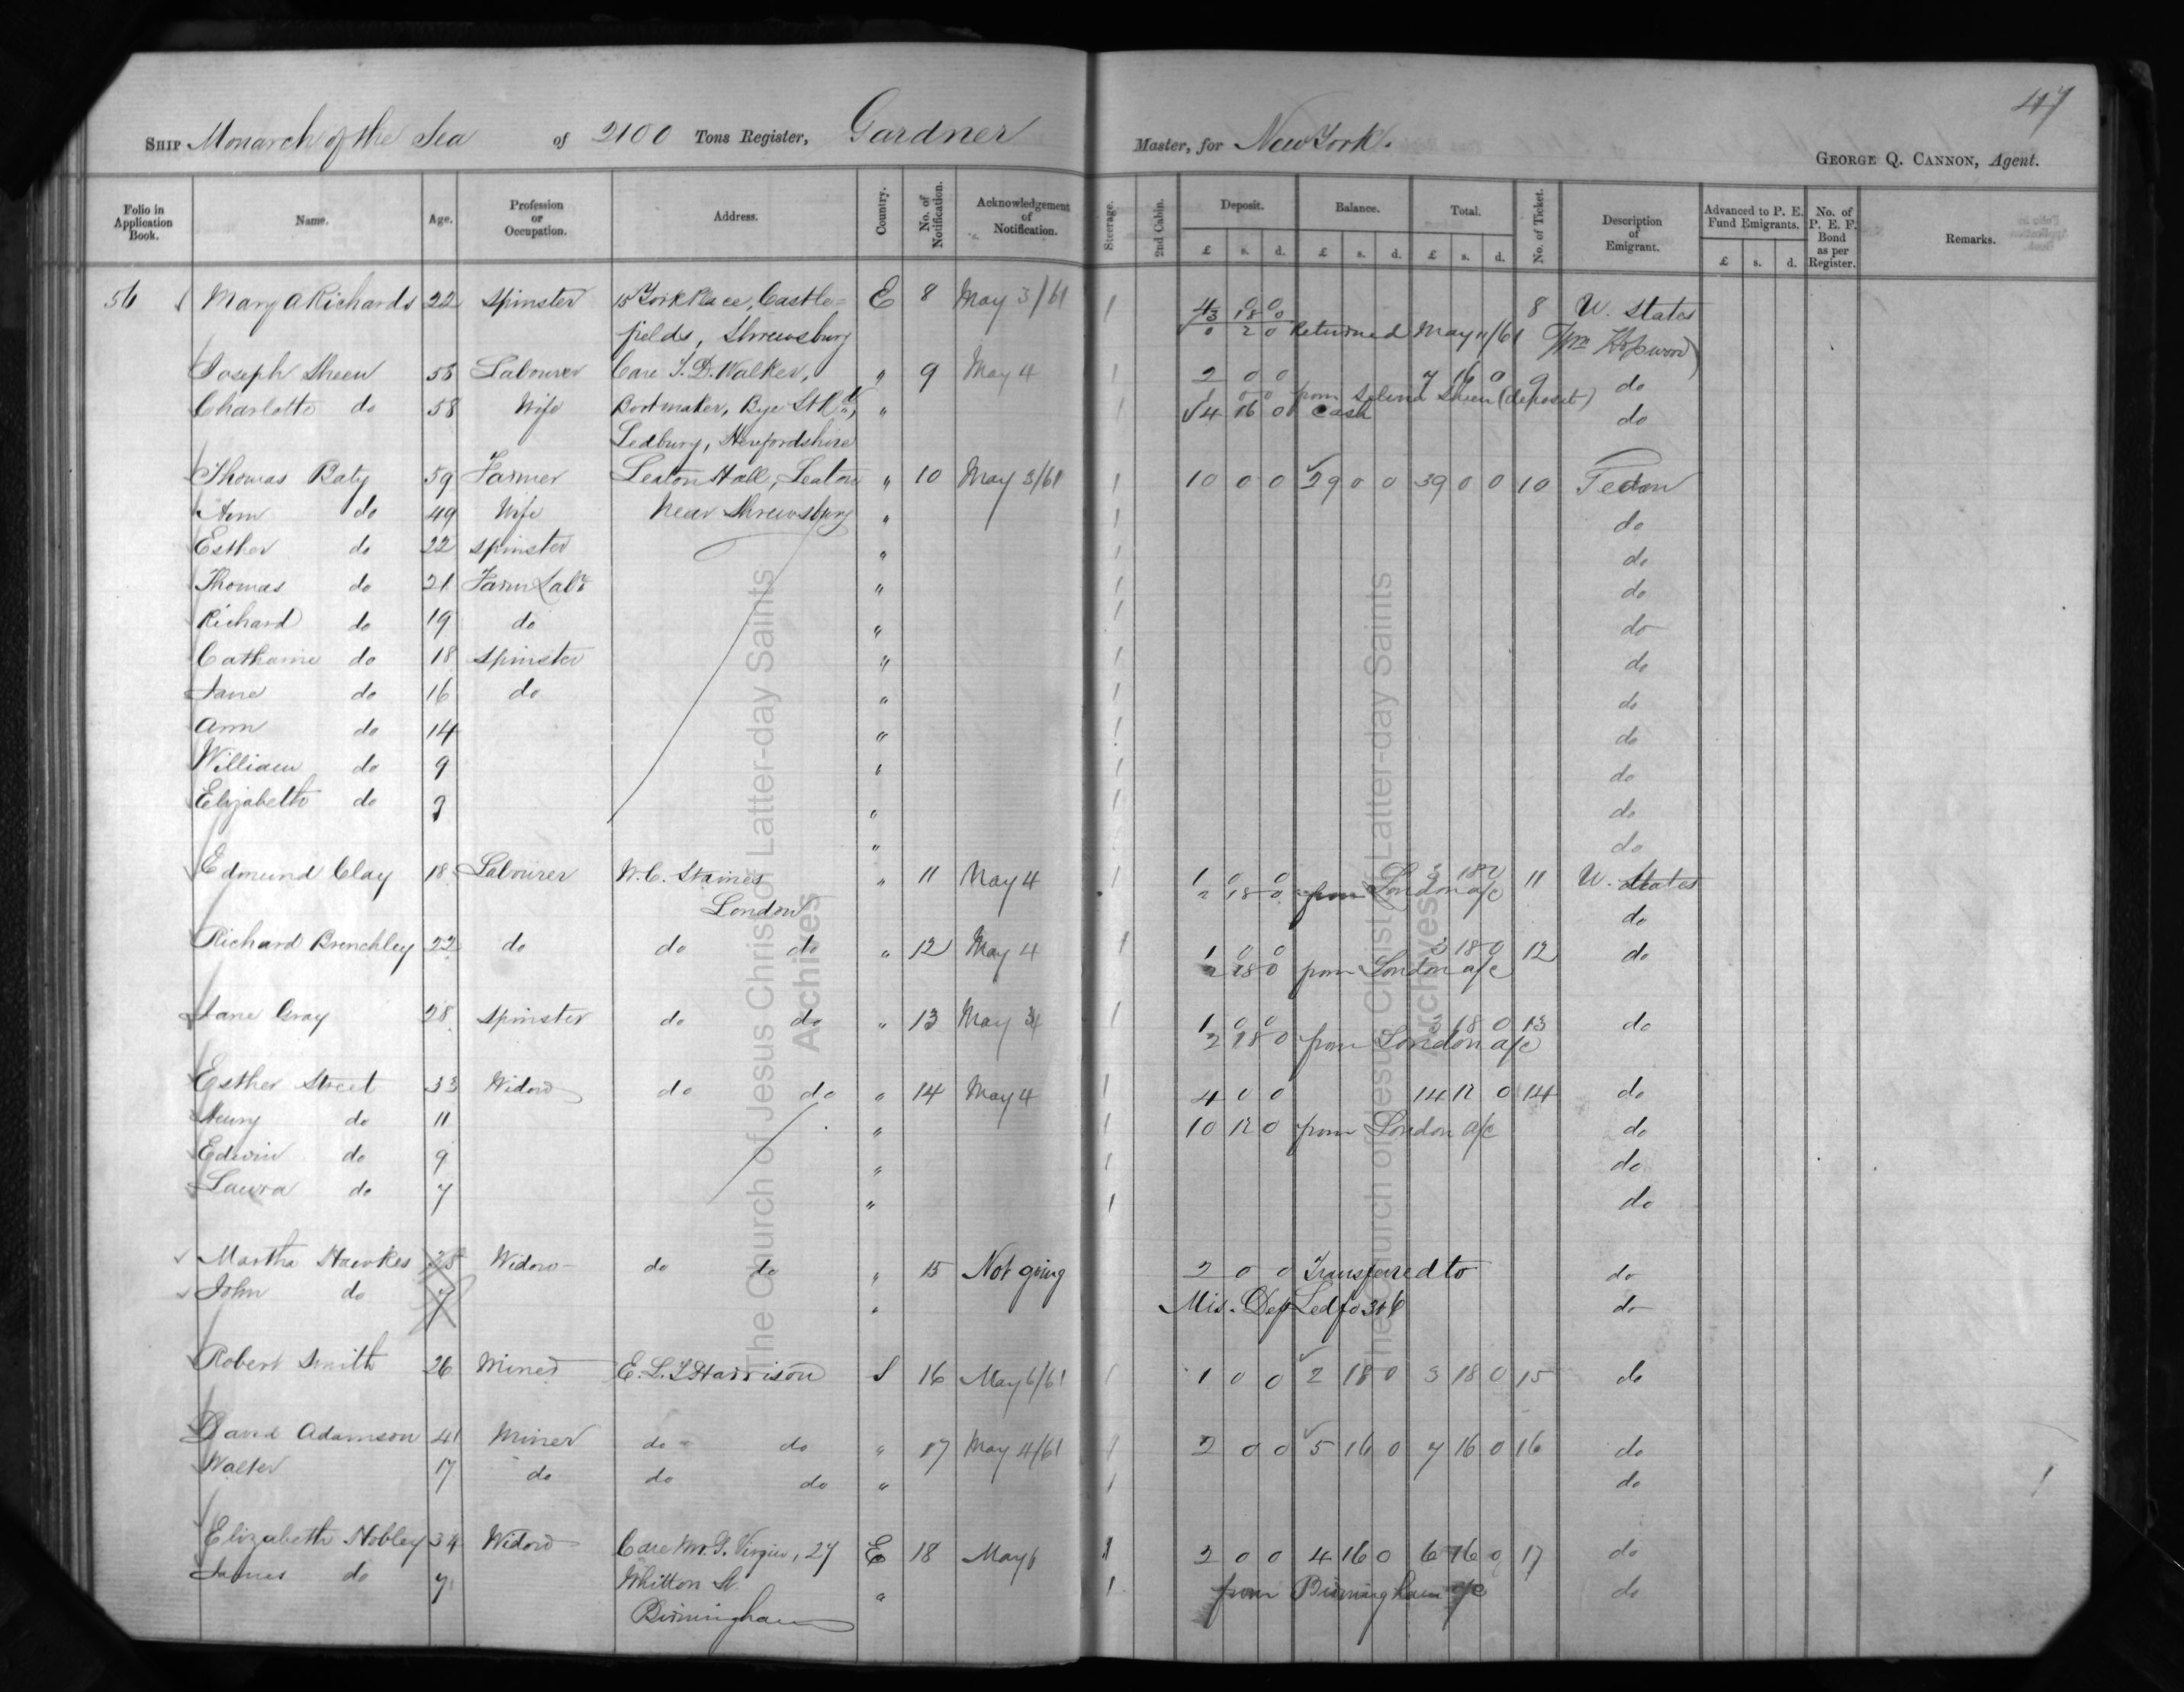 47
SHIP Monarch of the Sea of 2100 Tons Register, Gardner Master, for New York.
GEORGE Q. CANNON, Agent.
Folio in Application Book. Name. Age. Profession or Occupation. Address. Country. No. of Notification. Acknowledgement of Notification. Steerage. 2nd Cabin. Deposit. Balance. Total. No. of Ticket. Description of Emigrant. Advanced to P. E. Fund Emigrants. No. of P. E. F. Bond as per Register. Remarks.
£ s. d. £ s. d. £ s. d. £ s. d.
56 Mary A Richards 22 Spinster 15 York Place, Castle= E 8 May 3/61 1 4 0 0 8 U. States
3 18 0
fields, Shrewsbury 0 2 0 Returned May 11/61 (Wm Hopwood)
Joseph Sheen 53 Labourer Care T. D. Walker, " 9 May 4 1 2 0 0 7 16 0 9 do
1 0 0 from Selina Sheen (deposit)
Charlotte do 58 Wife Bootmaker, Bye St Rd, " 1 4 16 0 Cash do
Ledbury, Herefordshire
Thomas Baty 59 Farmer Leaton Hall, Leaton " 10 May 3/61 1 10 0 0 29 0 0 39 0 0 10 do
Ann do 49 Wife Near Shrewsbury " 1 do
Esther do 22 Spinster " 1 do
Thomas do 21 Farm Labr " 1 do
Richard do 19 do " 1 do
Catharine do 18 Spinster " 1 do
Jane do 16 do " 1 do
Ann do 14 " 1 do
William do 9 " 1 do
Elizabeth do 7 " 1 do
" do
Edmund Clay 18 Labourer W. C. Staines " 11 May 4 1 1 0 0 3 18 0 11 U. States
London 2 18 0 from London a/c do
Richard Brenchley 22 do do do " 12 May 4 1 1 0 0 3 18 0 12 do
2 18 0 from London a/c
Jane Gray 28 Spinster do do " 13 May 4 1 1 0 0 3 18 0 13 do
2 18 0 from London a/c
Esther Street 33 Widow do do " 14 May 4 1 4 0 0 14 12 0 14 do
Henry do 11 " 1 10 12 0 from London a/c do
Edwin do 9 " 1 do
Laura do 7 " 1 do
Martha Hawkes 38 Widow do do " 15 Not going 2 0 0 Transferred to do
John do 7 " Mis. Dep Led fo 346 do
Robert Smith 26 Miner E. L. T Harrison S 16 May 6/61 1 1 0 0 2 18 0 3 18 0 15 do
David Adamson 41 Miner do do " 17 May 4/61 1 2 0 0 5 16 0 7 16 0 16 do
Walter 17 do do do " 1 do
Elizabeth Nobley 34 Widow Care Mr. G. Virgin, 27 E 18 May 6 1 2 0 0 4 16 0 6 16 0 17 do
James do 7 Whitton St. " 1 from Birmingham a/c do
Birmingham
The Church of Jesus Christ of Latter-day Saints
Archives
The Church of Jesus Christ of Latter-day Saints
Archives